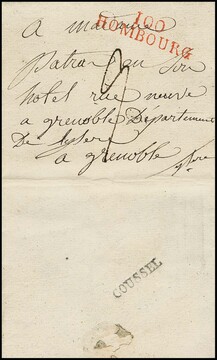 A madame
100
HOMBOURG
patras au son
hotel rue neuve
a grenoble Département
De lysere
a grenoble
COUSSEL